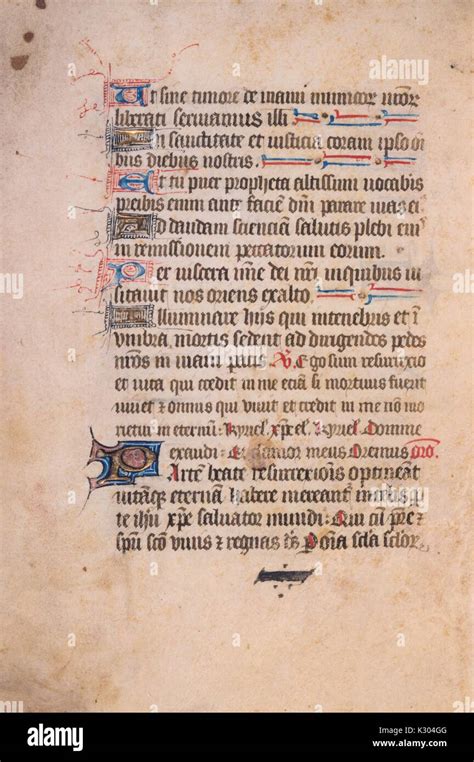 alamy
Ut sine timore de manu inimicor nror
liberati serviamus illi
In sanctitate et iusticia coram ipso oni
bus diebus nostris.
Et tu puer propheta altissimi vocabis
preibis enim ante faciē dn̄i parare vias ei
Ad dandam scienciam salutis plebi ei
in remissionem peccatorum eorum.
Per viscera mie dei nr̄i inquibus vi
sitavit nos oriens exalto.
Illuminare hiis qui intenebris et ī
umbra mortis sedent ad dirigendos pedes
nr̄os in viam pacis Ego sum resurrexio
et vita qui credit in me eciā si mortuus fuerit
vivet et omnis qui vivit et credit in me nō mo
rietur in eternū: Kyriel. xp̄el. Kyriel. Domine
exaudi: Et clamor meus Oremus oro.
Partē beate resurrexionis optineāt
vitāqz eternā habere mereant in celis p
te ihū xp̄e salvator mundi: Qui cū pr̄e et
sp̄u sc̄o vivis et regnas ds̄ p om̄ia sc̄la sc̄lor.
alamy
Image ID: K304GG
www.alamy.com